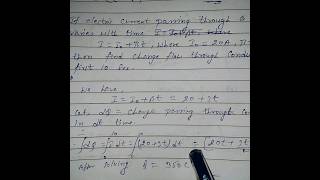 If electric current passing through a
varies with time I = I₀ + βt, where
I = I₀ + βt, where I₀ = 20A, β
then find charge flow through Condu
first 10 sec.
we have,
I = I₀ + βt = 20 + 3t
Let, dq = charge passing through co
in dt time.
∫dq = ∫I dt = ∫(20+3t)dt = [20t + 3t
After solving q = 350 C